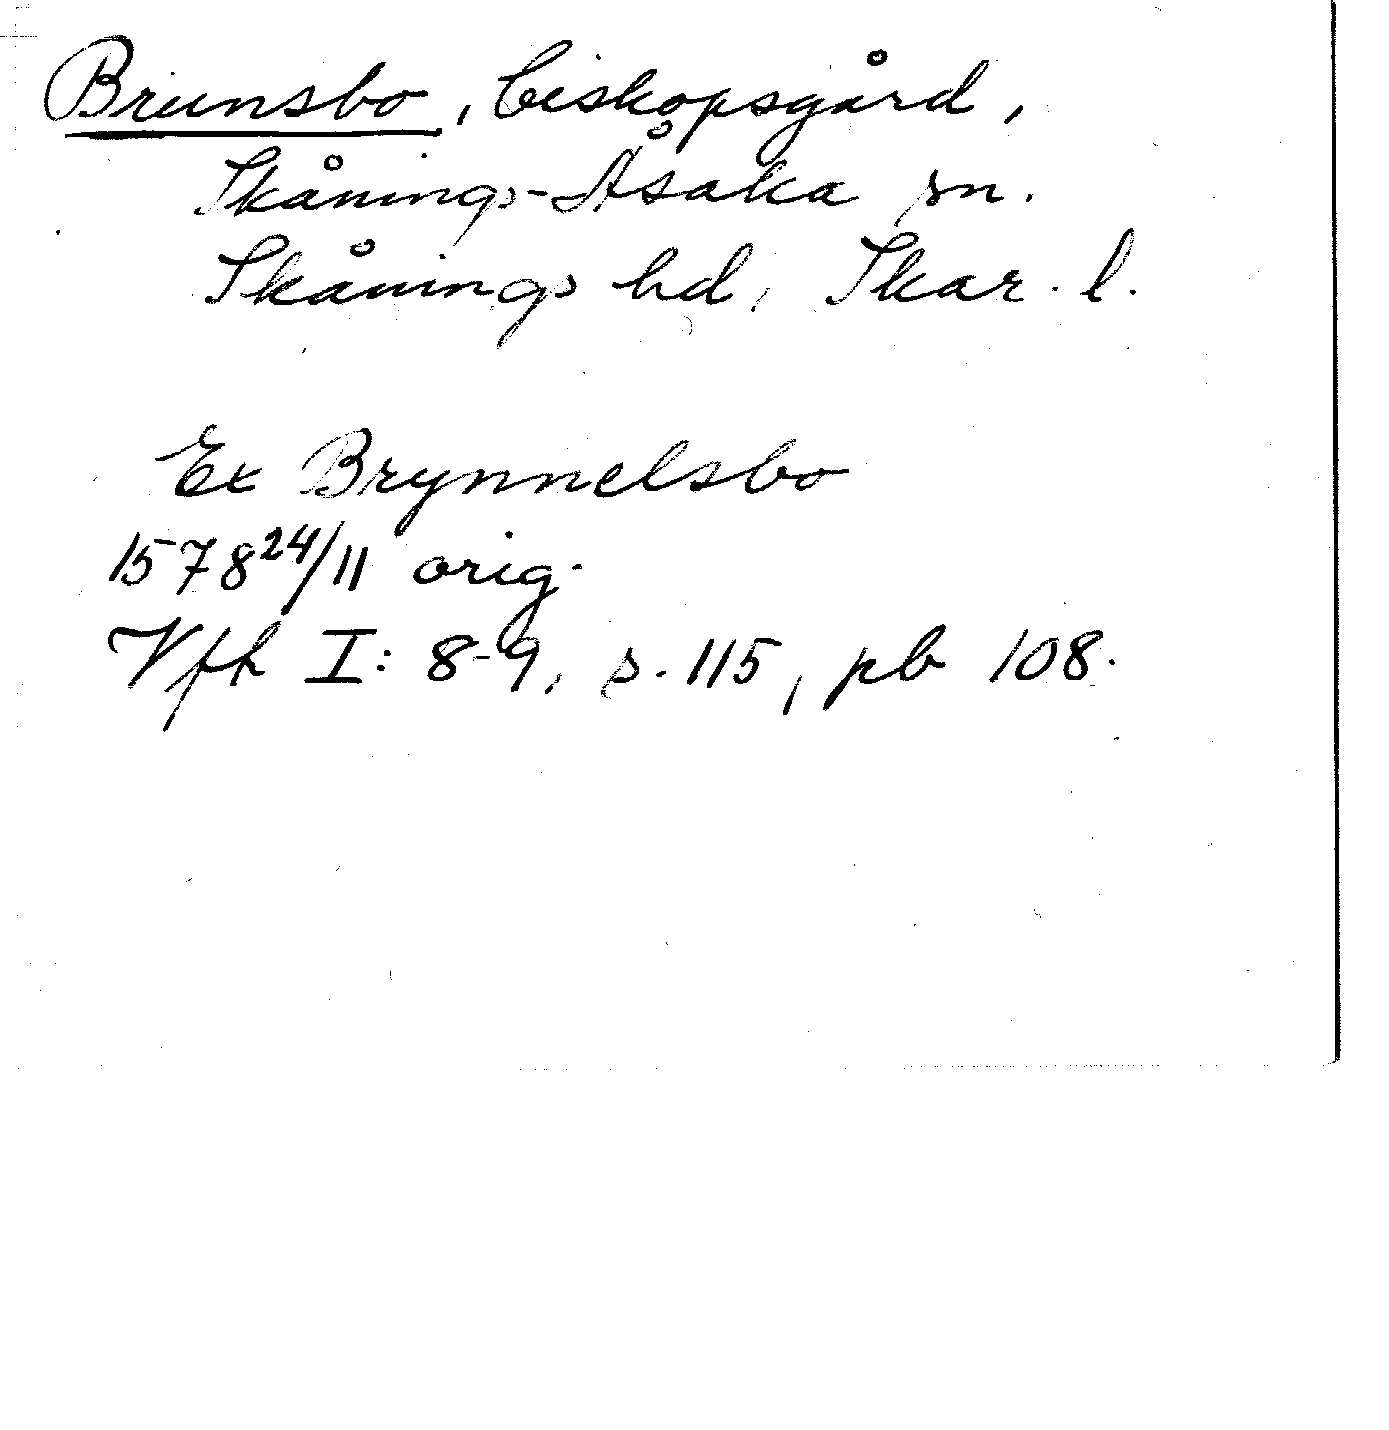 Brunsbo, biskopsgård,
Skånings-Åsaka sn.
Skånings hd, Skar. l.
Ex Brynnelsbo
1578 24/11 orig.
Vfh I: 8-9, s. 115, pb 108.